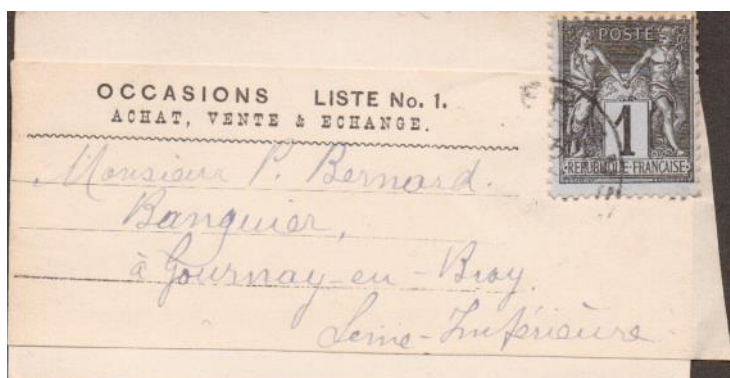 POSTE
OCCASIONS LISTE No. 1.
ACHAT, VENTE & ECHANGE.
1
REPUBLIQUE FRANÇAISE
Monsieur P. Bernard.
Banquier,
à Gournay-en-Bray.
Seine-Inférieure